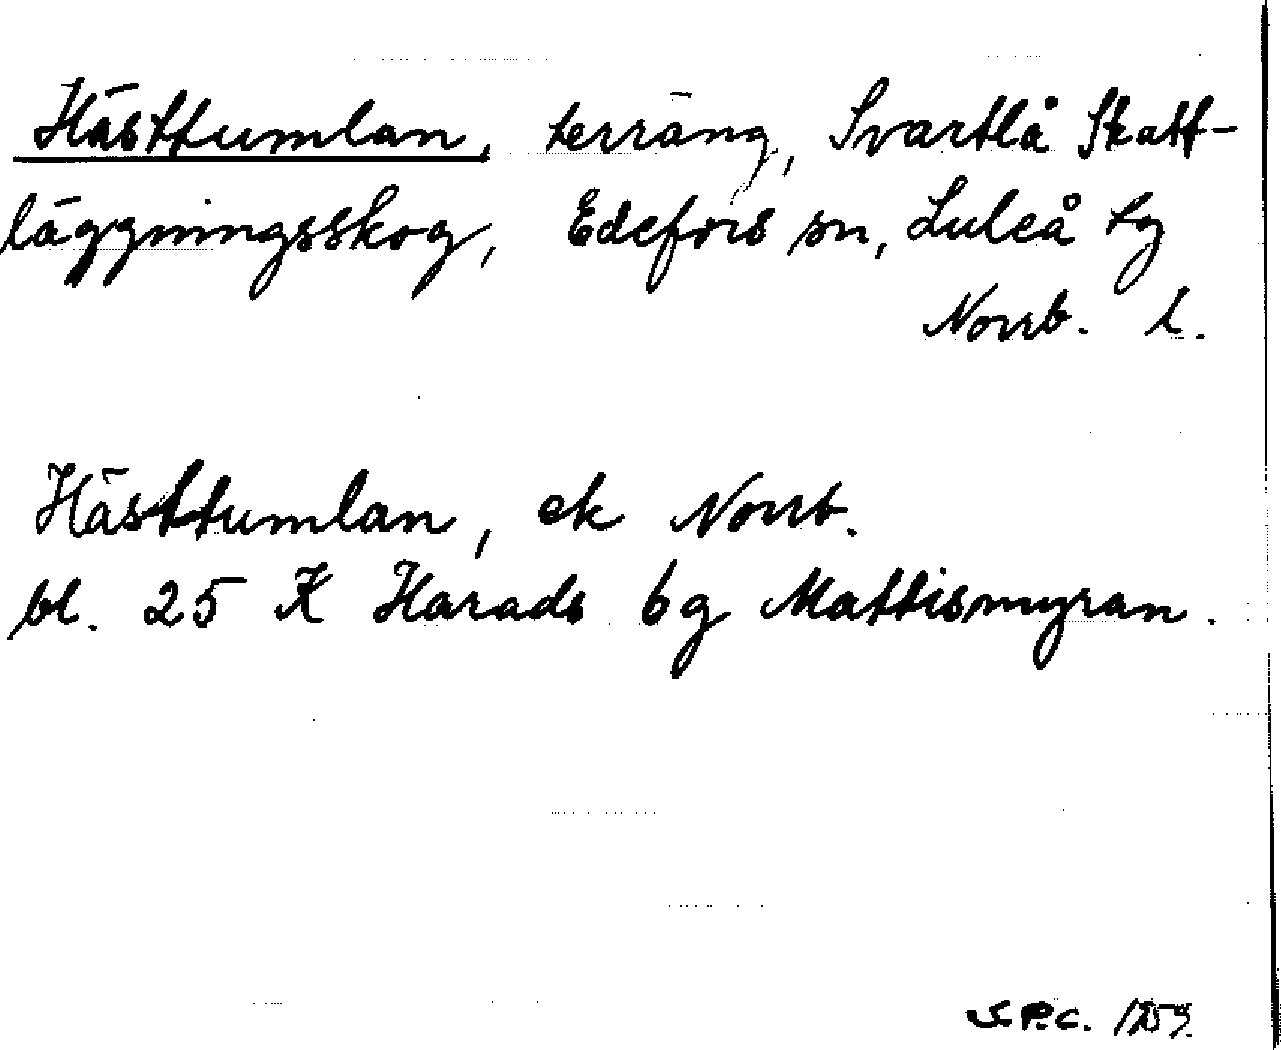 Hästtumlan, terräng, Svartlå Skatt-
läggningsskog, Edefors sn, Luleå tg
Norrb. l.
Hästtumlan, ek Norrb.
bl. 25 K Harads 6g Mattismyran.
S.P.C.